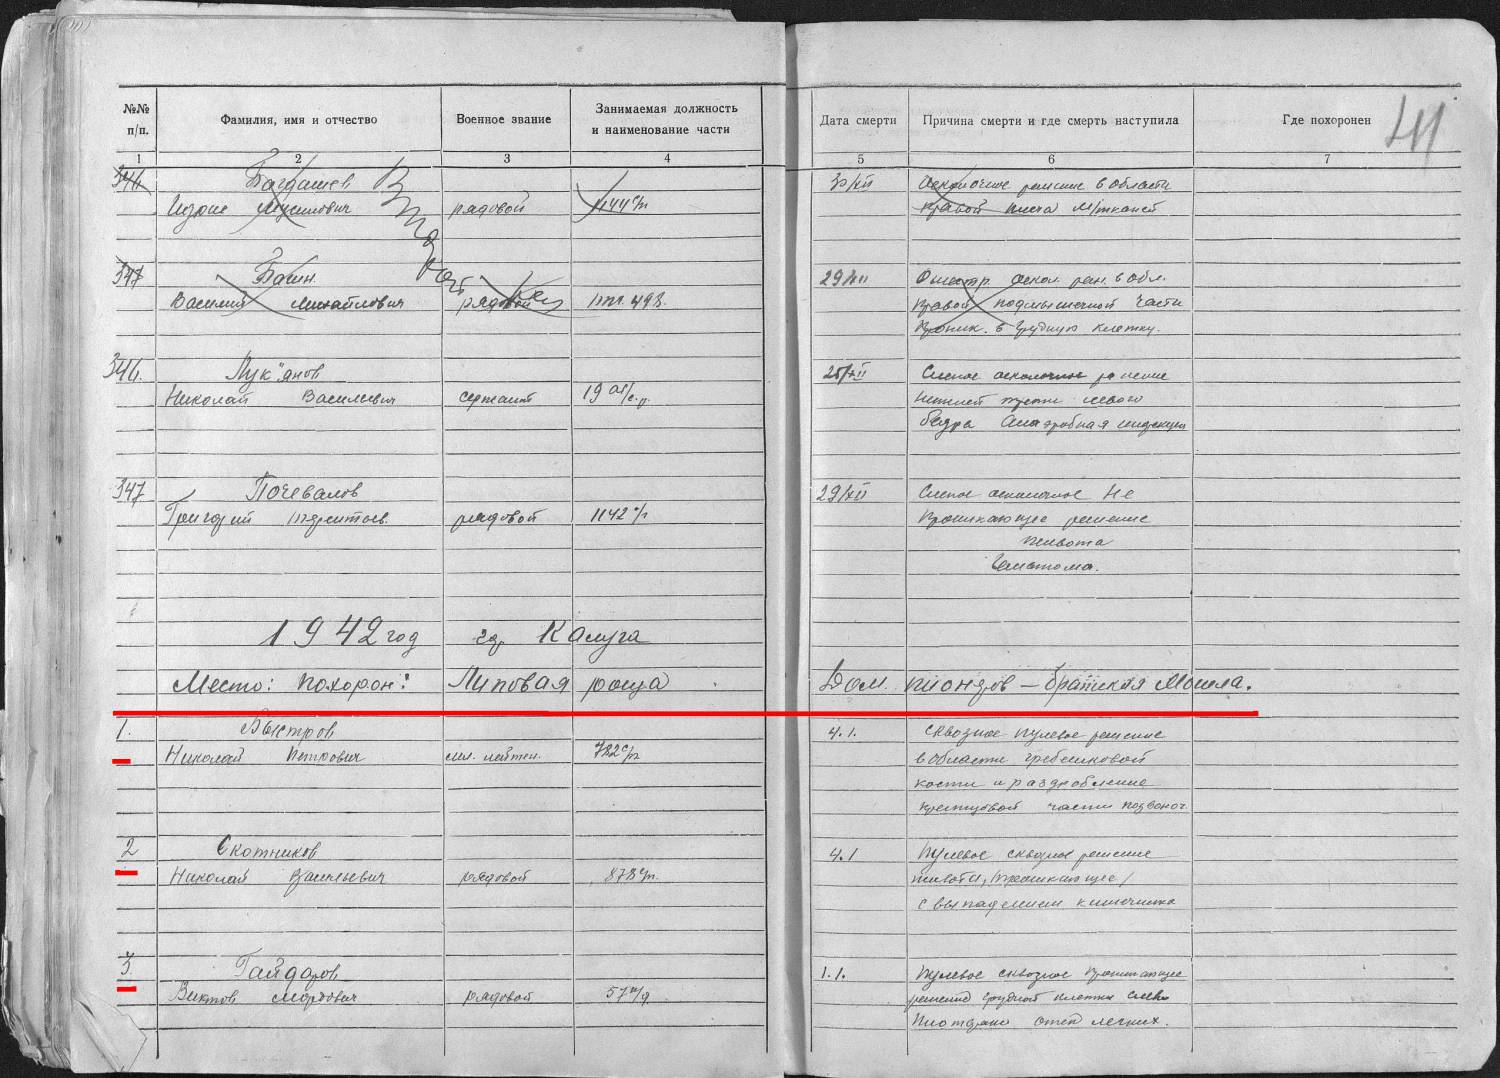 41
№№ п/п.
Фамилия, имя и отчество
Военное звание
Занимаемая должность и наименование части
Дата смерти
Причина смерти и где смерть наступила
Где похоронен
1 2 3 4 5 6 7
346 Багдашев
Идрис рядовой 1144 с/п
Вторично
30/XII Осколочное ранение в области
правой плеча м/тканей
347 Башн.
Василий Михайлович рядовой 498.
29/XII оскол. ран. в обл.
правой подмышечной части
проник. в грудную клетку.
346. Лук"янов
Николай Васильевич сержант 19
25/XII Слепое осколочное ранение
левого
бедра Анаэробная инфекция
347 Почевалов
Григорий рядовой 1142 с/п
29/XII Слепое осколочное Не
проникающее ранение
живота
1942 год гор. Калуга
Место: похорон: Липовая роща Дом. пионеров – братская могила.
1. Быстров
Николай Петрович мл. лейтен. 782 с/п
4.1. Сквозное пулевое ранение
в области гребешковой
кости и раздробление
крестцовой части позвоноч
2 Скотников
Николай Васильевич рядовой 878 с/п.
4.1 Пулевое сквозное ранение
живота, /проникающее/
с выпадением кишечника
3. Гайдаров
Виктор рядовой 57
1.1. Пулевое сквозное проникающее
ранение грудной клетки слева
отек легких.